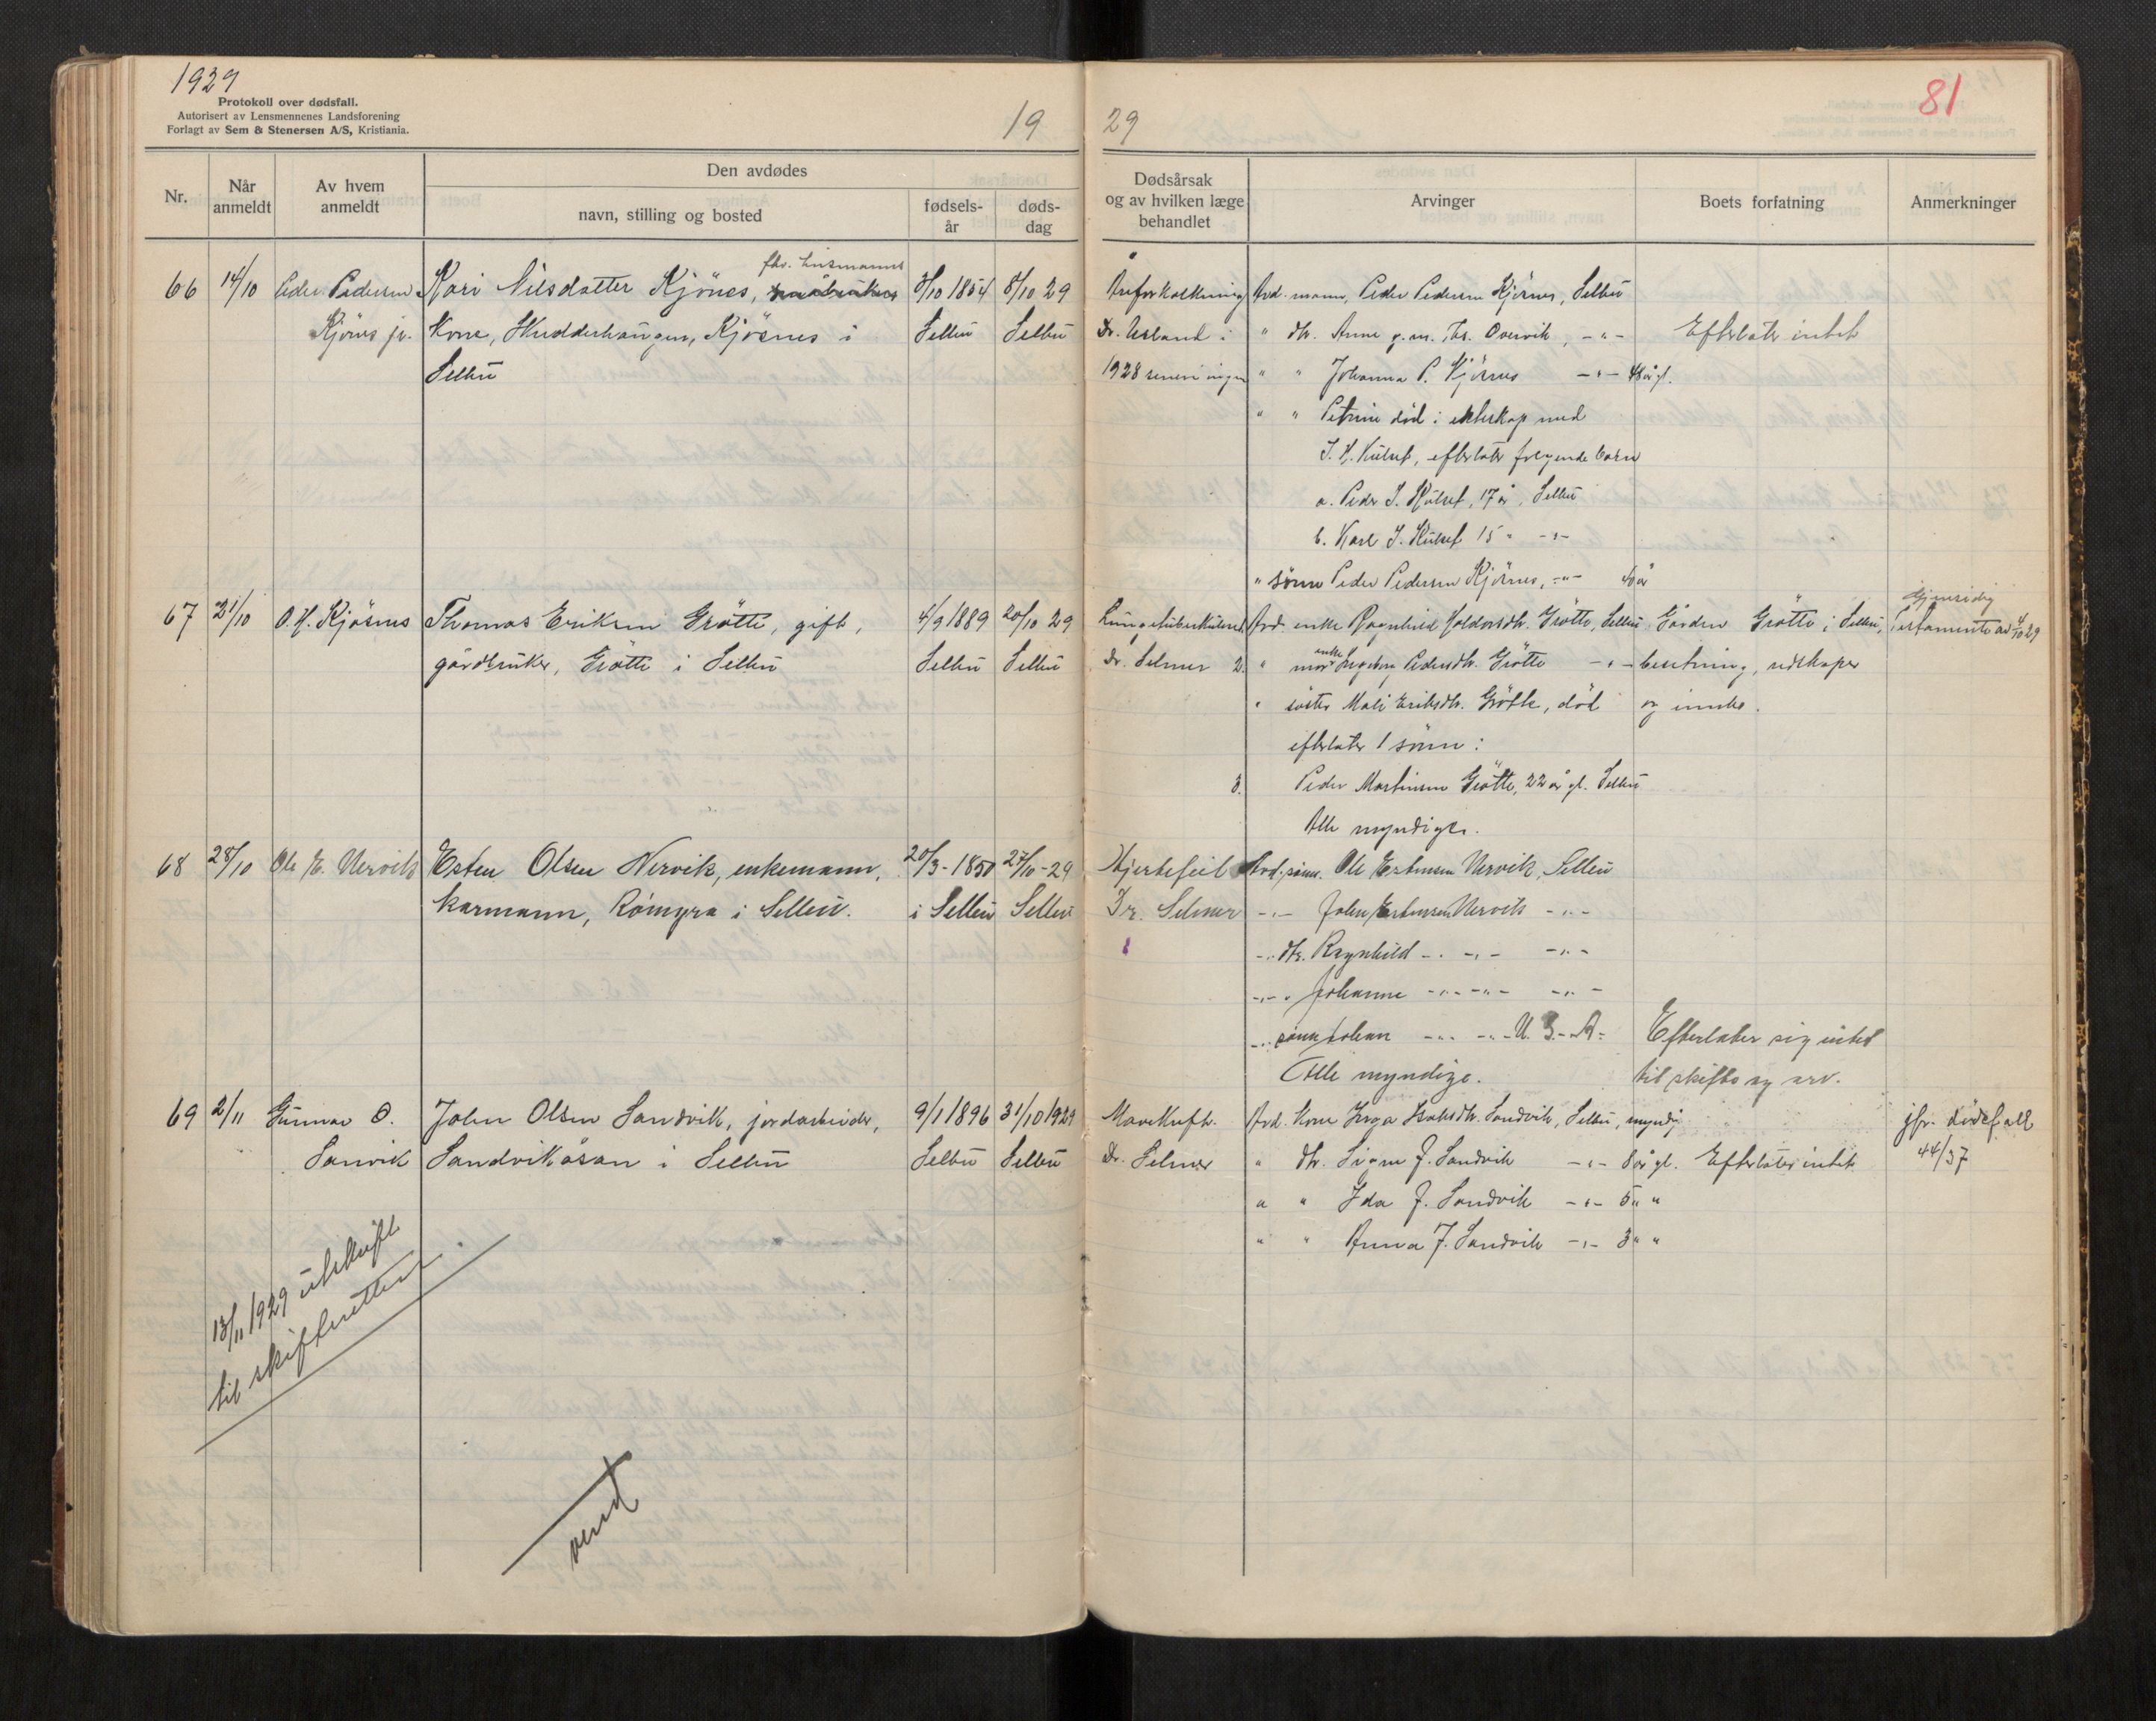 1929
Protokoll over dødsfall.
Autorisert av Lensmennenes Landsforening
Forlagt av Sem & Stenersen A/S, Kristiania.
19 29
81
Nr.
Når anmeldt
Av hvem anmeldt
Den avdødes
navn, stilling og bosted
fødselsår
dødsdag
Dødsårsak og av hvilken læge behandlet
Arvinger
Boets forfatning
Anmerkninger
66 14/10 Peder Pedersen Kari Nilsdatter Kjösnes, fhv. husmanns 3/10 1854 8/10 29 Areforkalkning Avd. mann, Peder Pedersen Kjösnes, Selbu
Kjösnes jr. Kone, Kjösnes i Selbu Selbu Dr. i " dtr. Anne g.m. Overvik, -"- Efterlater intet
Selbu 1928 senere ingen " " Johanna P. Kjösnes -"- 48 år gl.
" " Petrine död i ekteskap med
J. H. Kulset, efterlater fölgende barn
a. Peder J. Kulset, 17 år, Selbu
b. Karl J. Kulset 15 " -"-
" sönn Peder Pedersen Kjösnes, -"- 40 år
Gjensidig
67 21/10 O. H. Kjösnes Thomas Eriksen Grötte, gift, 4/9 1889 20/10 29 Lungetuberkulose Avd. enke Ragnhild Haldorsdtr. Grötte, Selbu Gården Grötte i Selbu, Testamente av 4/10 29
gårdbruker, Grötte i Selbu Selbu Selbu Dr. Selmer 2. " mor enke Ingeborg Pedersdtr. Grötte -"- besetning, redskaper
" söster Mali Eriksdtr. Grötte, död og innbo.
efterlater 1 sönn:
3. Peder Martinsen Grötte, 22 år gl. Selbu
Alle myndige.
68 28/10 Ole E. Nervik Esten Olsen Nervik, enkemann, 20/3-1850 27/10-29 Hjertefeil Avd. sönn. Ole Estensen Nervik, Selbu
kårmann, Römyra i Selbu. i Selbu Selbu Dr. Selmer -"- John Estensen Nervik -"-
-"- dtr. Ragnhild -"- -"- -"-
-"- " Johanne -"- -"- -"-
-"- sönn Johan -"- -"- U.S.A. Efterlater sig intet
Alle myndige. til skifte og arv.
69 2/11 Gunnar O. John Olsen Sandvik, jordarbeider, 9/1 1896 31/10 1929 Mavekreft. Avd. Kone Inga Sandvik, Selbu, myndig jfr. dödsfall
Sanvik Sandvikåsan i Selbu Selbu Selbu Dr. Selmer " dtr. Signe J. Sandvik -"- 8 år gl. Efterlater intet 44/37
" " Ida J. Sandvik -"- 5 " "
" " Anna J. Sandvik -"- 3 " "
13/11 1929 utskrift
til skifteretten.
vend